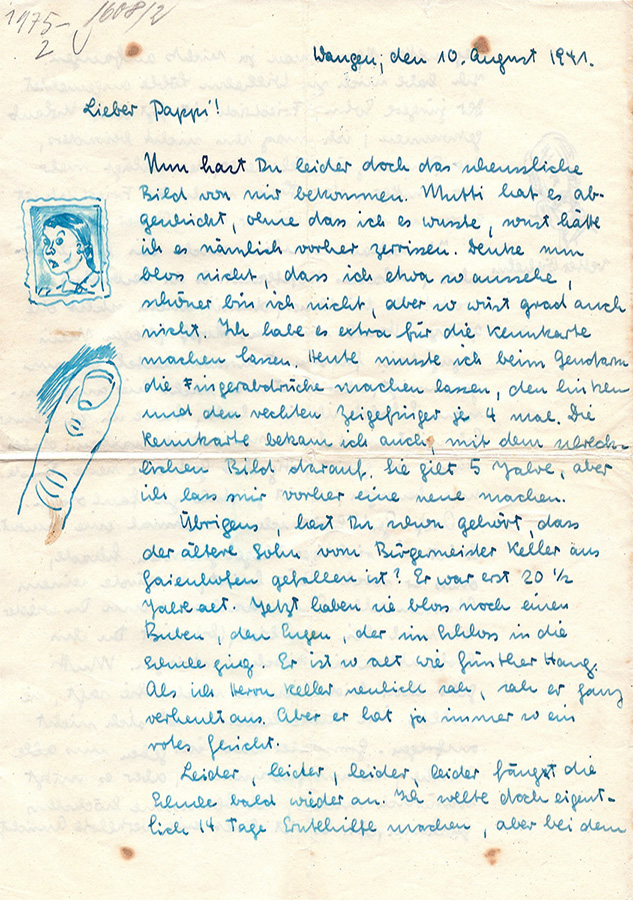 1975-1608/2
2
Wangen, den 10. August 1941.
Lieber Pappi!
Nun hast Du leider doch das scheussliche
Bild von mir bekommen. Mutti hat es ab-
geschickt, ohne dass ich es wusste, sonst hätte
ich es nämlich vorher zerrissen. Denke nun
blos nicht, dass ich etwa so aussehe,
schöner bin ich nicht, aber so wüst grad auch
nicht. Ich habe es extra für die Kennkarte
machen lassen. Heute musste ich beim Gendarm
die Fingerabdrücke machen lassen, den linken
und den rechten Zeigefinger je 4 mal. Die
Kennkarte bekam ich auch, mit dem schreck-
lichen Bild darauf. Sie gilt 5 Jahre, aber
ich lass mir vorher eine neue machen.
Übrigens, hast Du schon gehört, dass
der ältere Sohn vom Bürgermeister Keller aus
Gaienhofen gefallen ist? Er war erst 20 ½
Jahre alt. Jetzt haben sie blos noch einen
Buben, den Eugen, der im Schloss in die
Schule ging. Er ist so alt wie Günther Hang.
Als ich Herrn Keller neulich sah, sah er ganz
verheult aus. Aber er hat ja immer so ein
rotes Gesicht.
Leider, leider, leider, leider fängt die
Schule bald wieder an. Ich wollte doch eigent-
lich 14 Tage Erntehilfe machen, aber bei dem